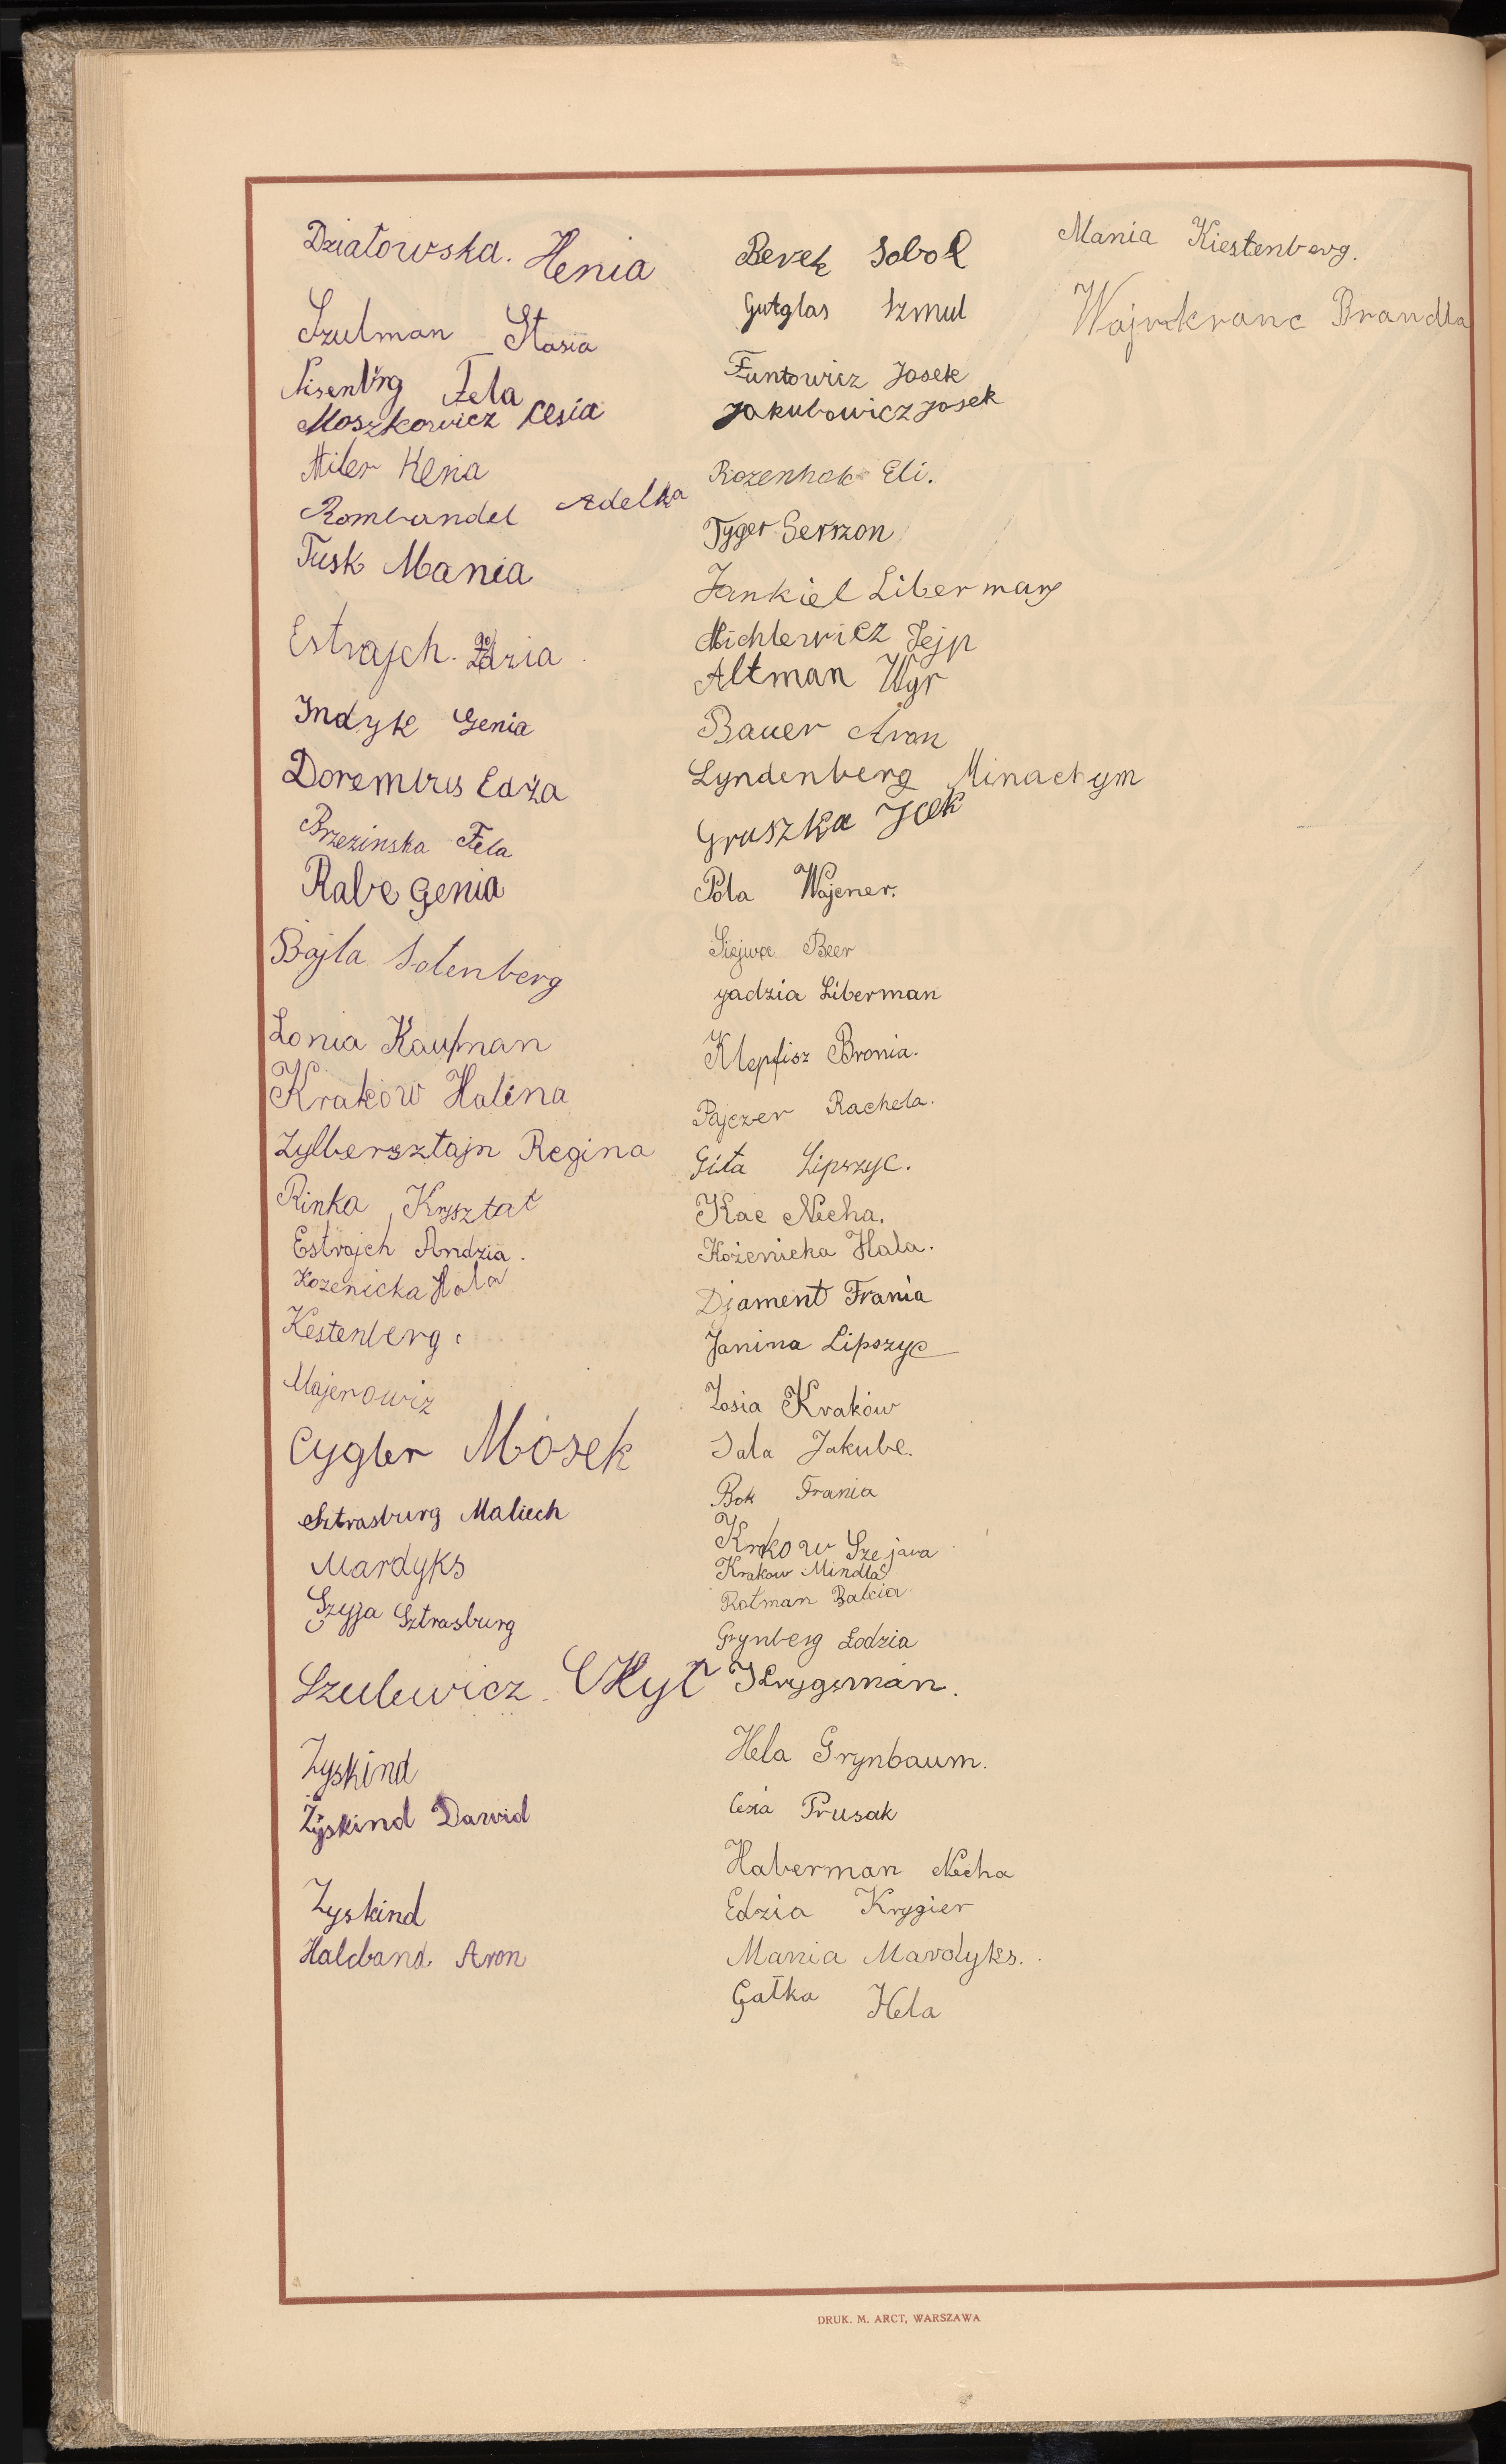 Działowska. Henia
Szulman Stasia
Nisenbrg Fela
Moszkowicz Cesia
Miler Henia
Rombandel Adelka
Tusk Mania
Estrajch
Indyk Genia
Dorembus Edża
Brzezinska Fela
Rabe Genia
Bajla Solenberg
Lonia Kaufman
Kraków Halina
Zylbersztajn Regina
Rinka Kryształ
Estrajch Andzia.
Kozenicka Hala
Kestenberg
Majerowiz
Cygler Mosek
Sztrasburg Maliech
Mardyks
Szyja Sztrasburg
Szulewicz
Zyskind
Zyskind Dawid
Zyskind
Halcband. Aron
Berek Sobol
Gutglas Szmul
Funtowicz Josek
Jakubowicz Josek
Eli.
Tyger Gerszon
Jankiel Liberman
Michlewicz
Altman Wgr
Bauer Aron
Lyndenberg Minachym
Gruszka Icek
Pola Wajener.
Beer
Jadzia Liberman
Klepfisz Bronia.
Pajczer Rachela.
Gita Lipszyc.
Kac Necha.
Kożenicka Hala.
Djament Frania
Janina Lipszyc
Zosia Kraków
Sala Jakube.
Bok Frania
Krkow Szejawa
Krakow Mindla
Rotman Balcia
Grynberg Łodzia
Krygsman.
Hela Grynbaum.
Cesia Prusak
Haberman Necha
Edzia Krygier
Mania Mardyks.
Gałka Hela
Mania Kiestenberg.
Wajnkranc Brandla
DRUK. M. ARCT, WARSZAWA